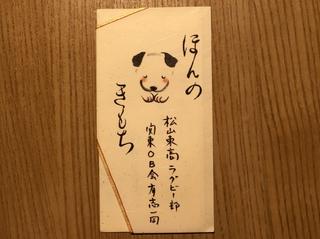 ほんの
きもち
松山東高ラグビー部
関東OB会有志一同